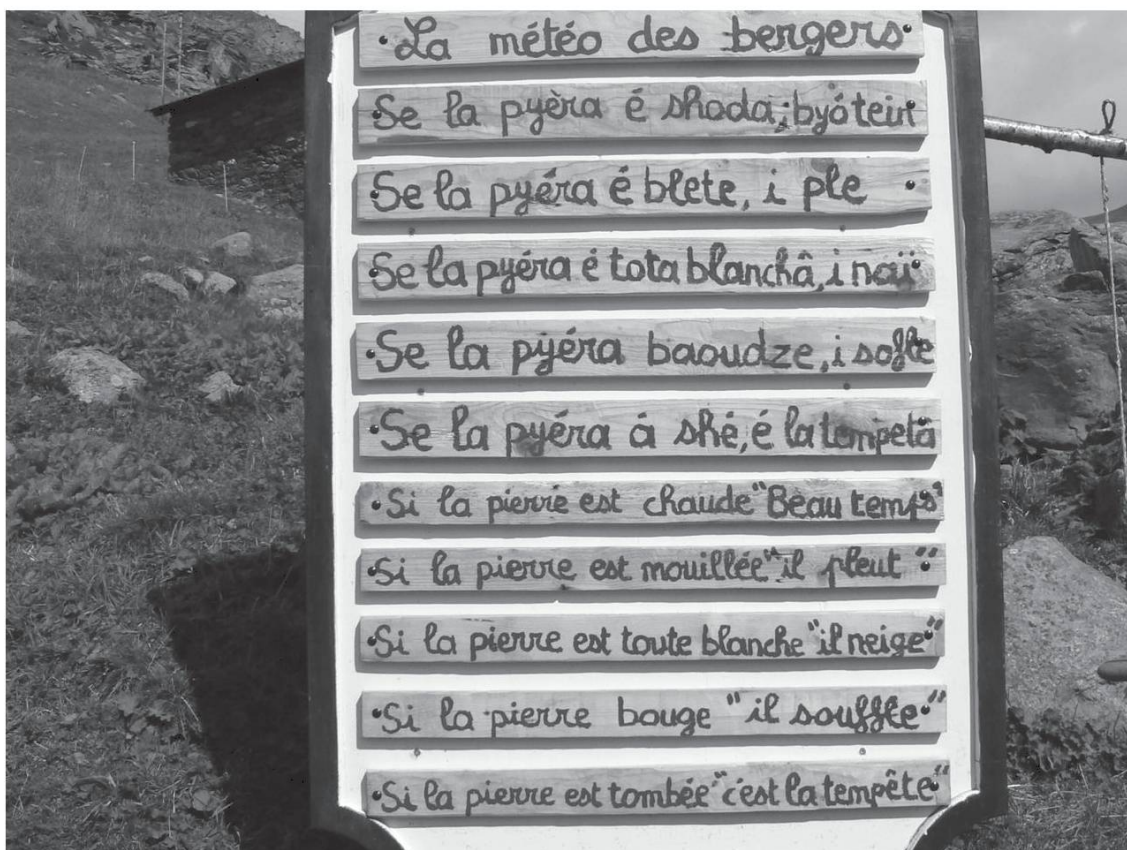 La météo des bergers
Se la pyèra é shoda, byó tein
Se la pyéra é blete, i ple
Se la pyéra é tota blanchâ, i naï
Se la pyéra baoudze, i sofle
Se la pyéra á shé, é la tempetâ
Si la pierre est chaude "Beau temps"
Si la pierre est mouillée "il pleut"
Si la pierre est toute blanche "il neige"
Si la pierre bouge "il souffle"
Si la pierre est tombée "c'est la tempête"